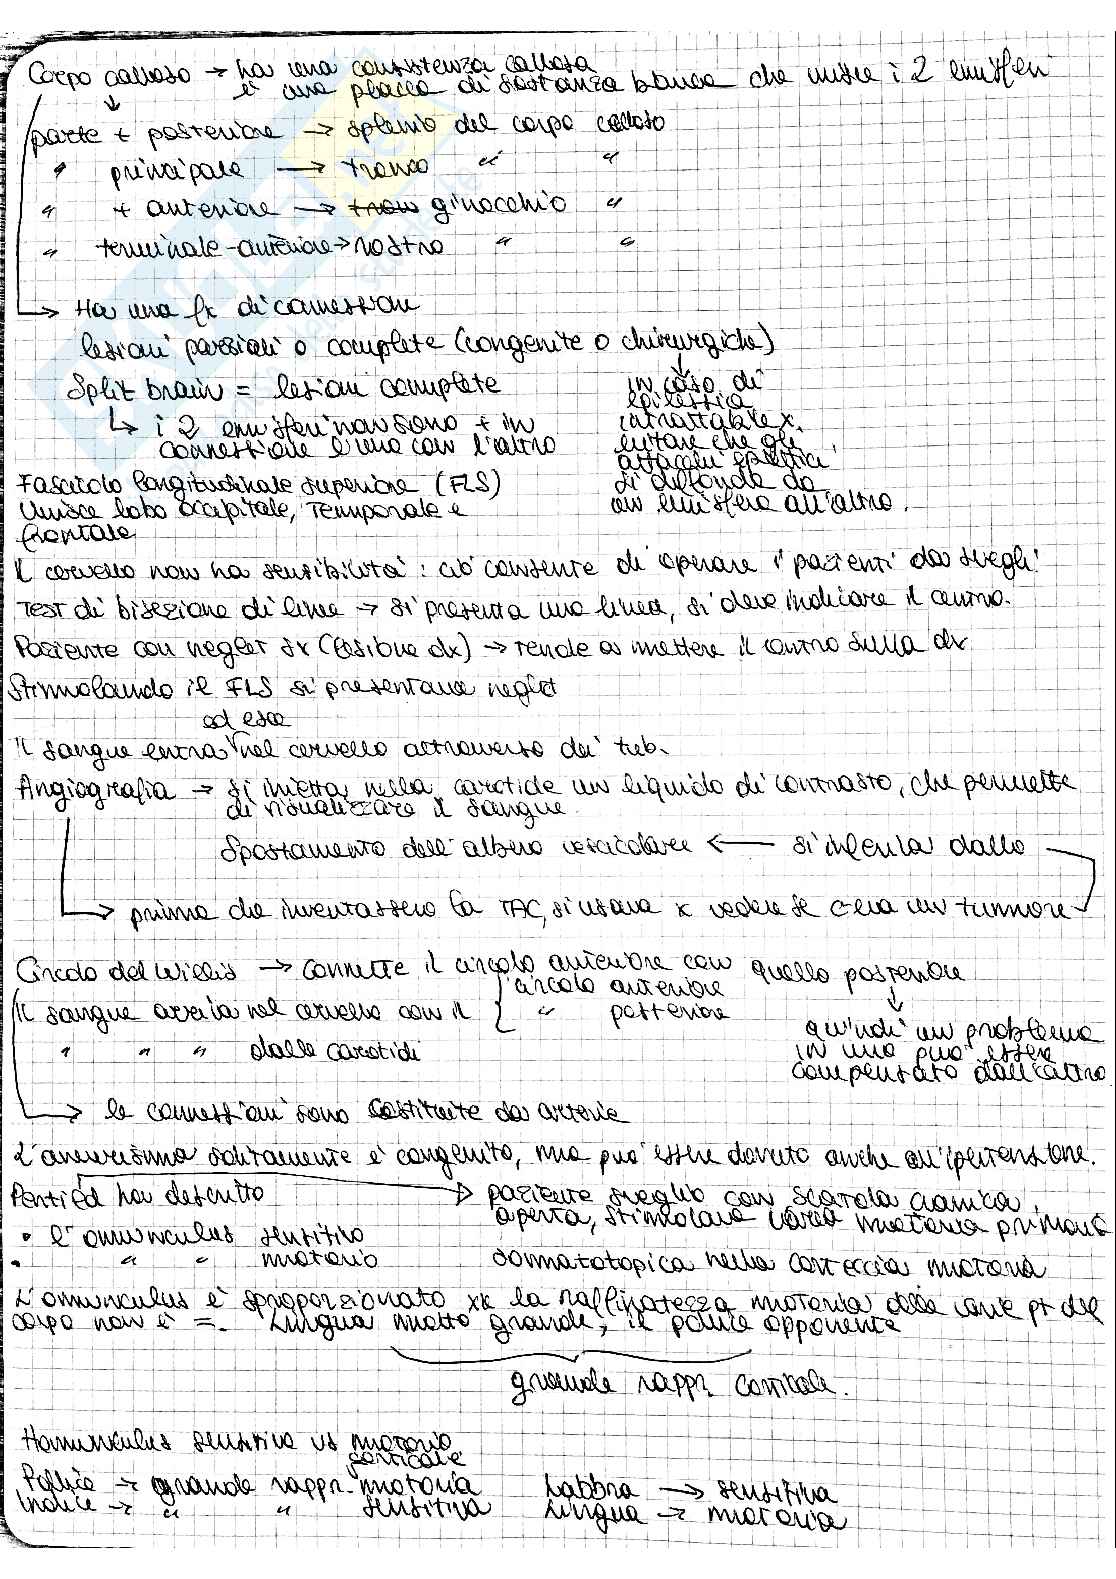 Corpo calloso → ha una consistenza callosa
è una placca di sostanza bianca che unisce i 2 emisferi
parte + posteriore → splenio del corpo calloso
" principale → tronco " "
" + anteriore → ginocchio "
" terminale-anteriore → rostro " "
→ Ha una fx di connessione
lesioni parziali o complete (congenite o chirurgiche)
Split brain = lesioni complete
↳ i 2 emisferi non sono + in
connessione l'uno con l'altro
in caso di
epilessia
intrattabile x
evitare che gli
attacchi epilettici
si diffonda da
un emisfero all'altro.
Fascicolo longitudinale superiore (FLS)
Unisce lobo occipitale, temporale e
frontale
Il cervello non ha sensibilità: ciò consente di operare i pazienti da svegli!
Test di bisezione di linee → si presenta una linea, si deve indicare il centro.
Paziente con neglet sx (lesione dx) → tende a mettere il centro sulla dx
Stimolando il FLS si presentava neglet
ed esce
Il sangue entra nel cervello attraverso dei tubi.
Angiografia → si inietta nella carotide un liquido di contrasto, che permette
di visualizzare il sangue.
Spostamento dell'albero ← si inferiva dallo
→ prima che inventassero la TAC, si usava x vedere se c'era un tumore
Circolo del Willis → connette il circolo anteriore con quello posteriore
Il sangue arriva nel cervello con il { circolo anteriore
" posteriore
" " " dalle carotidi
quindi un problema
in uno può essere
compensato dall'altro
→ le connessioni sono costituite da arterie
L'aneurisma solitamente è congenito, ma può essere dovuto anche all'ipertensione.
Penfield ha descritto → paziente sveglio con scatola cranica
aperta, stimolava l'area motoria primaria
• l'omunculus sensitivo
• " " motorio somatotopica nella corteccia motoria
L'omunculus è sproporzionato xk la raffinatezza motoria delle varie pt del
corpo non è =. Lingua molto grande, il pollice opponente
grande rappr corticale.
Homunculus sensitivo vs motorio
corticale
Pollice → grande rappr. motoria Labbra → sensitiva
Indice → " " sensitiva Lingua → motoria